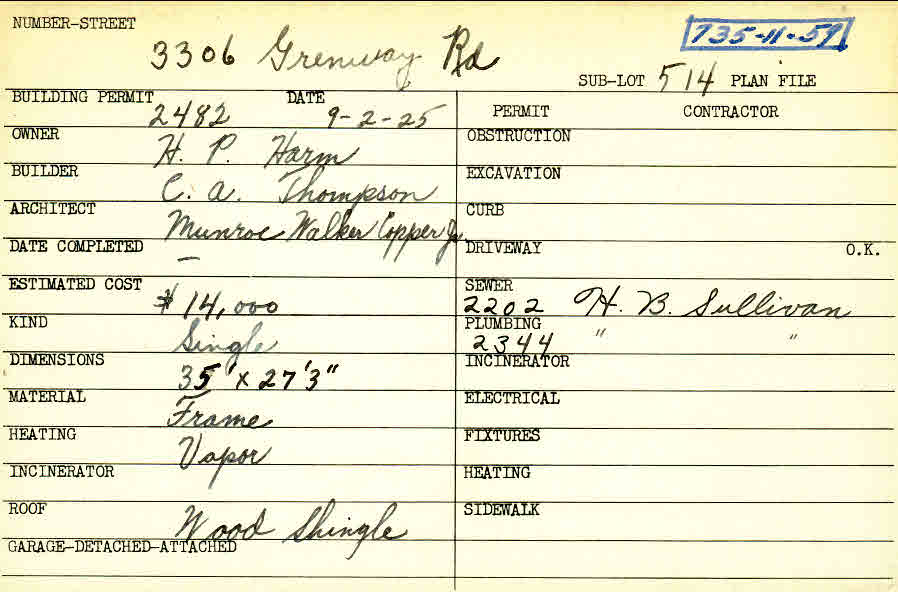 NUMBER-STREET
3306 Grenway Rd
735-11-59
SUB-LOT 514 PLAN FILE
BUILDING PERMIT 2482 DATE 9-2-25
OWNER H. P. Harm
BUILDER C. A. Thompson
ARCHITECT Munroe Walker Copper Jr
DATE COMPLETED —
ESTIMATED COST $14,000
KIND Single
DIMENSIONS 35' x 27'3"
MATERIAL Frame
HEATING Vapor
INCINERATOR
ROOF Wood Shingle
GARAGE-DETACHED-ATTACHED
PERMIT CONTRACTOR
OBSTRUCTION
EXCAVATION
CURB
DRIVEWAY O.K.
SEWER
2202 H. B. Sullivan
PLUMBING
2344 " "
INCINERATOR
ELECTRICAL
FIXTURES
HEATING
SIDEWALK